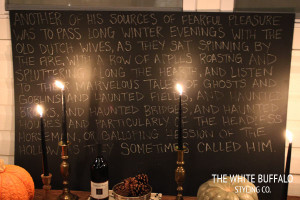 ANOTHER OF HIS SOURCES OF FEARFUL PLEASURE
WAS TO PASS LONG WINTER EVENINGS WITH THE
OLD DUTCH WIVES, AS THEY SAT SPINNING BY
THE FIRE, WITH A ROW OF APPLES ROASTING AND
SPLUTTERING ALONG THE HEARTH, AND LISTEN
TO THEIR MARVELOUS TALES OF GHOSTS AND
GOBLINS AND HAUNTED FIELDS, AND HAUNTED
AND HAUNTED BRIDGES, AND HAUNTED
AND PARTICULARLY OF THE HEADLESS
HORSEMAN, OR GALLOPING HESSIAN OF THE
HOLLOW, AS THEY SOMETIMES CALLED HIM.
THE WHITE BUFFALO
STYLING CO.